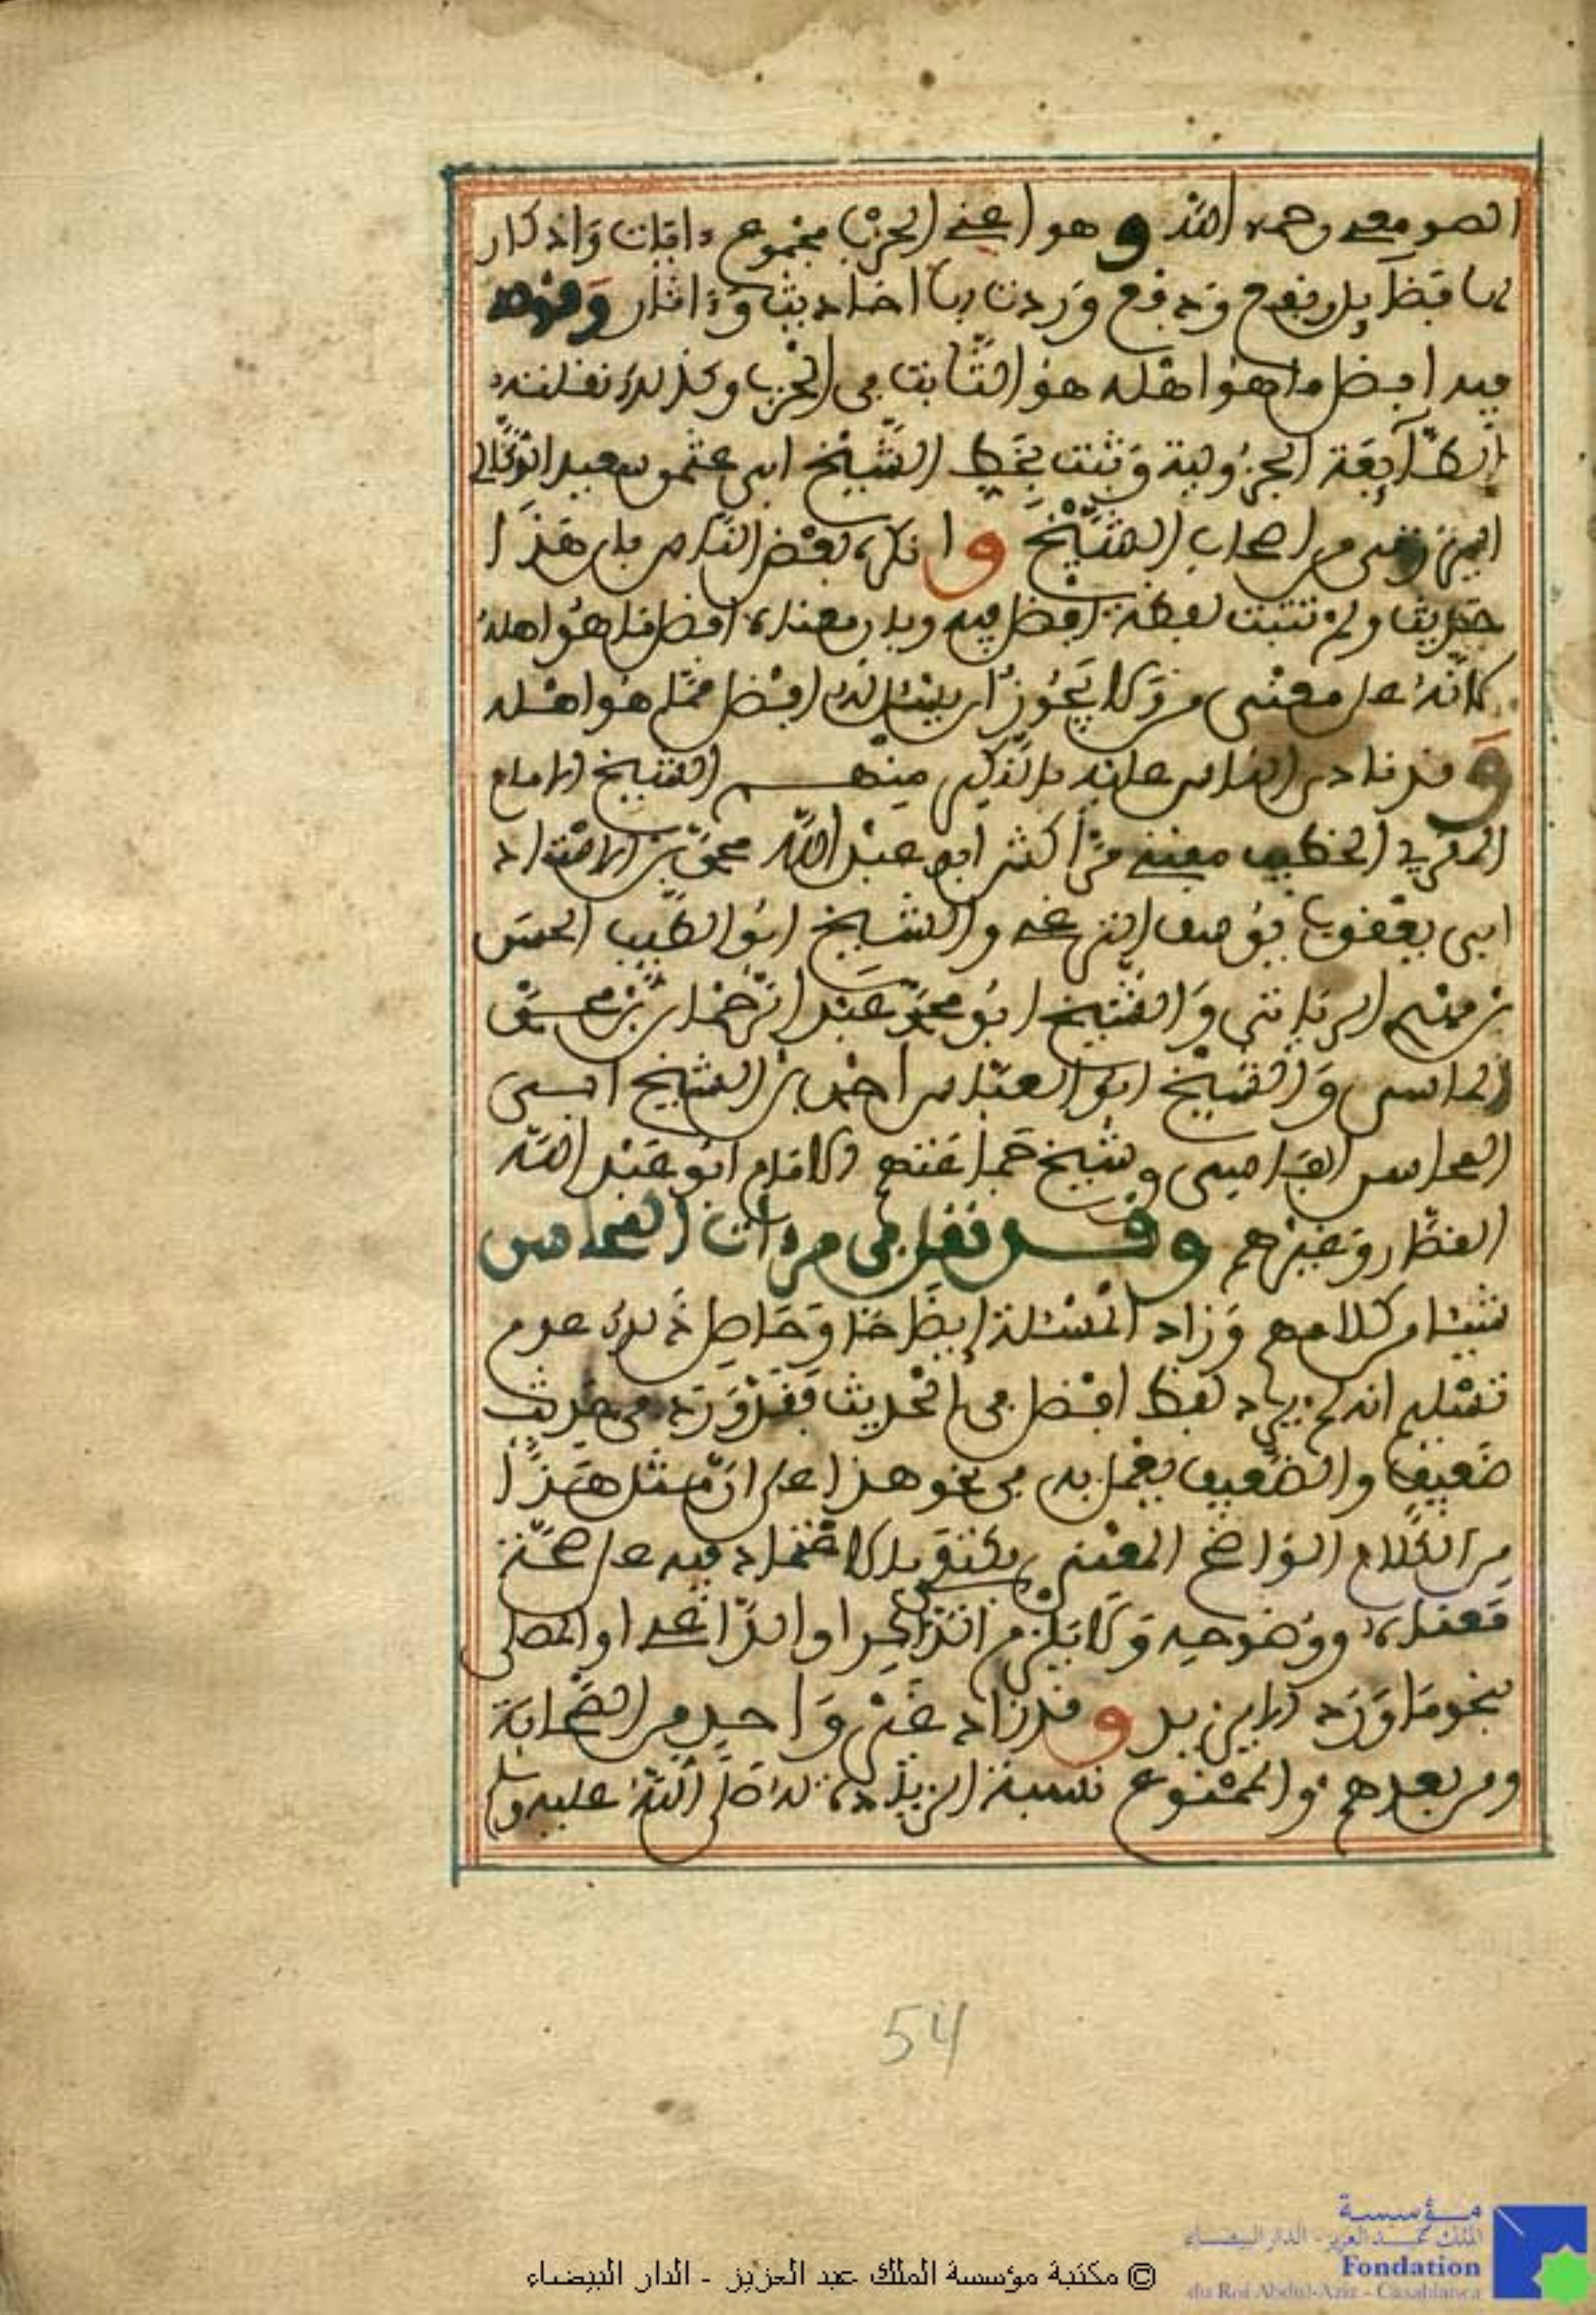 الصومعي رحمه الله وهو اعني الحزب مجموع ءايات واذكار
لها فضآيل ونفع ودفع وردت بها احاديث وءاثار وقوله
فيه افضل ما هو اهله هو الثابت في الحزب وكذلك نقلته
الطآيفة الجزولية وثبت بخط الشيخ ابي عثمن سعيد
من اصحاب الشيخ وانكره بعض الناس بان هذا
حديث ولم تثبت لفظة افضل فيه وبان معناه افضل مما هو اهله
لانه على معنى من ولا يجوز ان يسئل الله افضل مما هو اهله
وقد رد الناس عليه بالنكير منهم الشيخ الامام
المقري الخطيب مفتي مراكش ابو عبد الله محمد بن الاستاد
ابي يعقوب يوسف الترغي والشيخ ابو الطيب الحسن
بن الزياتي والشيخ ابو محمد عبد الرحمان بن محمد
الفاسي والشيخ ابو العباس احمد بن الشيخ ابي
المحاسن الفاسي وشيخ جماعتهم الامام ابو عبد الله
القصار وغيرهم وقد نقل في مرءات المحاسن
شيئا من كلامهم وزاد المسئلة ايضاحا وحاصل ذلك عدم
تسليم انه لم يرد لفظ افضل في الحديث فقد ورد في حديث
ضعيف والضعيف يعمل به في نحو هذا على ان مثل هذا
من الكلام الواضح المعنى يكتفى بالاعتماد فيه على صحة
معناه ووضوحه ولا يلزم الذاكر او الداعي او المصلي
نحو ما ورد الا يزيد وقد زاد غير واحد من الصحابة
ومن بعدهم والممنوع نسبة الزيادة له صلى الله عليه وسلم
54
© مكتبة مؤسسة الملك عبد العزيز - الدار البيضاء
مؤسسة
الملك عبد العزيز - الدار البيضاء
Fondation
du Roi Abdul-Aziz - Casablanca